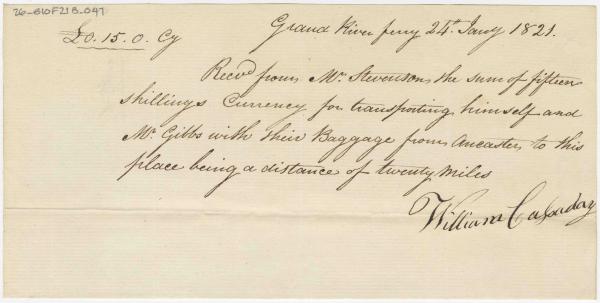 26-B10F21B-047
£0.15.0. Cy
Grand River ferry 24th Jany 1821.
Recvd from Mr. Stevenson the sum of fifteen
shillings Currency for transporting himself and
Mr. Gibbs with their Baggage from Ancaster to this
place being a distance of twenty miles
William